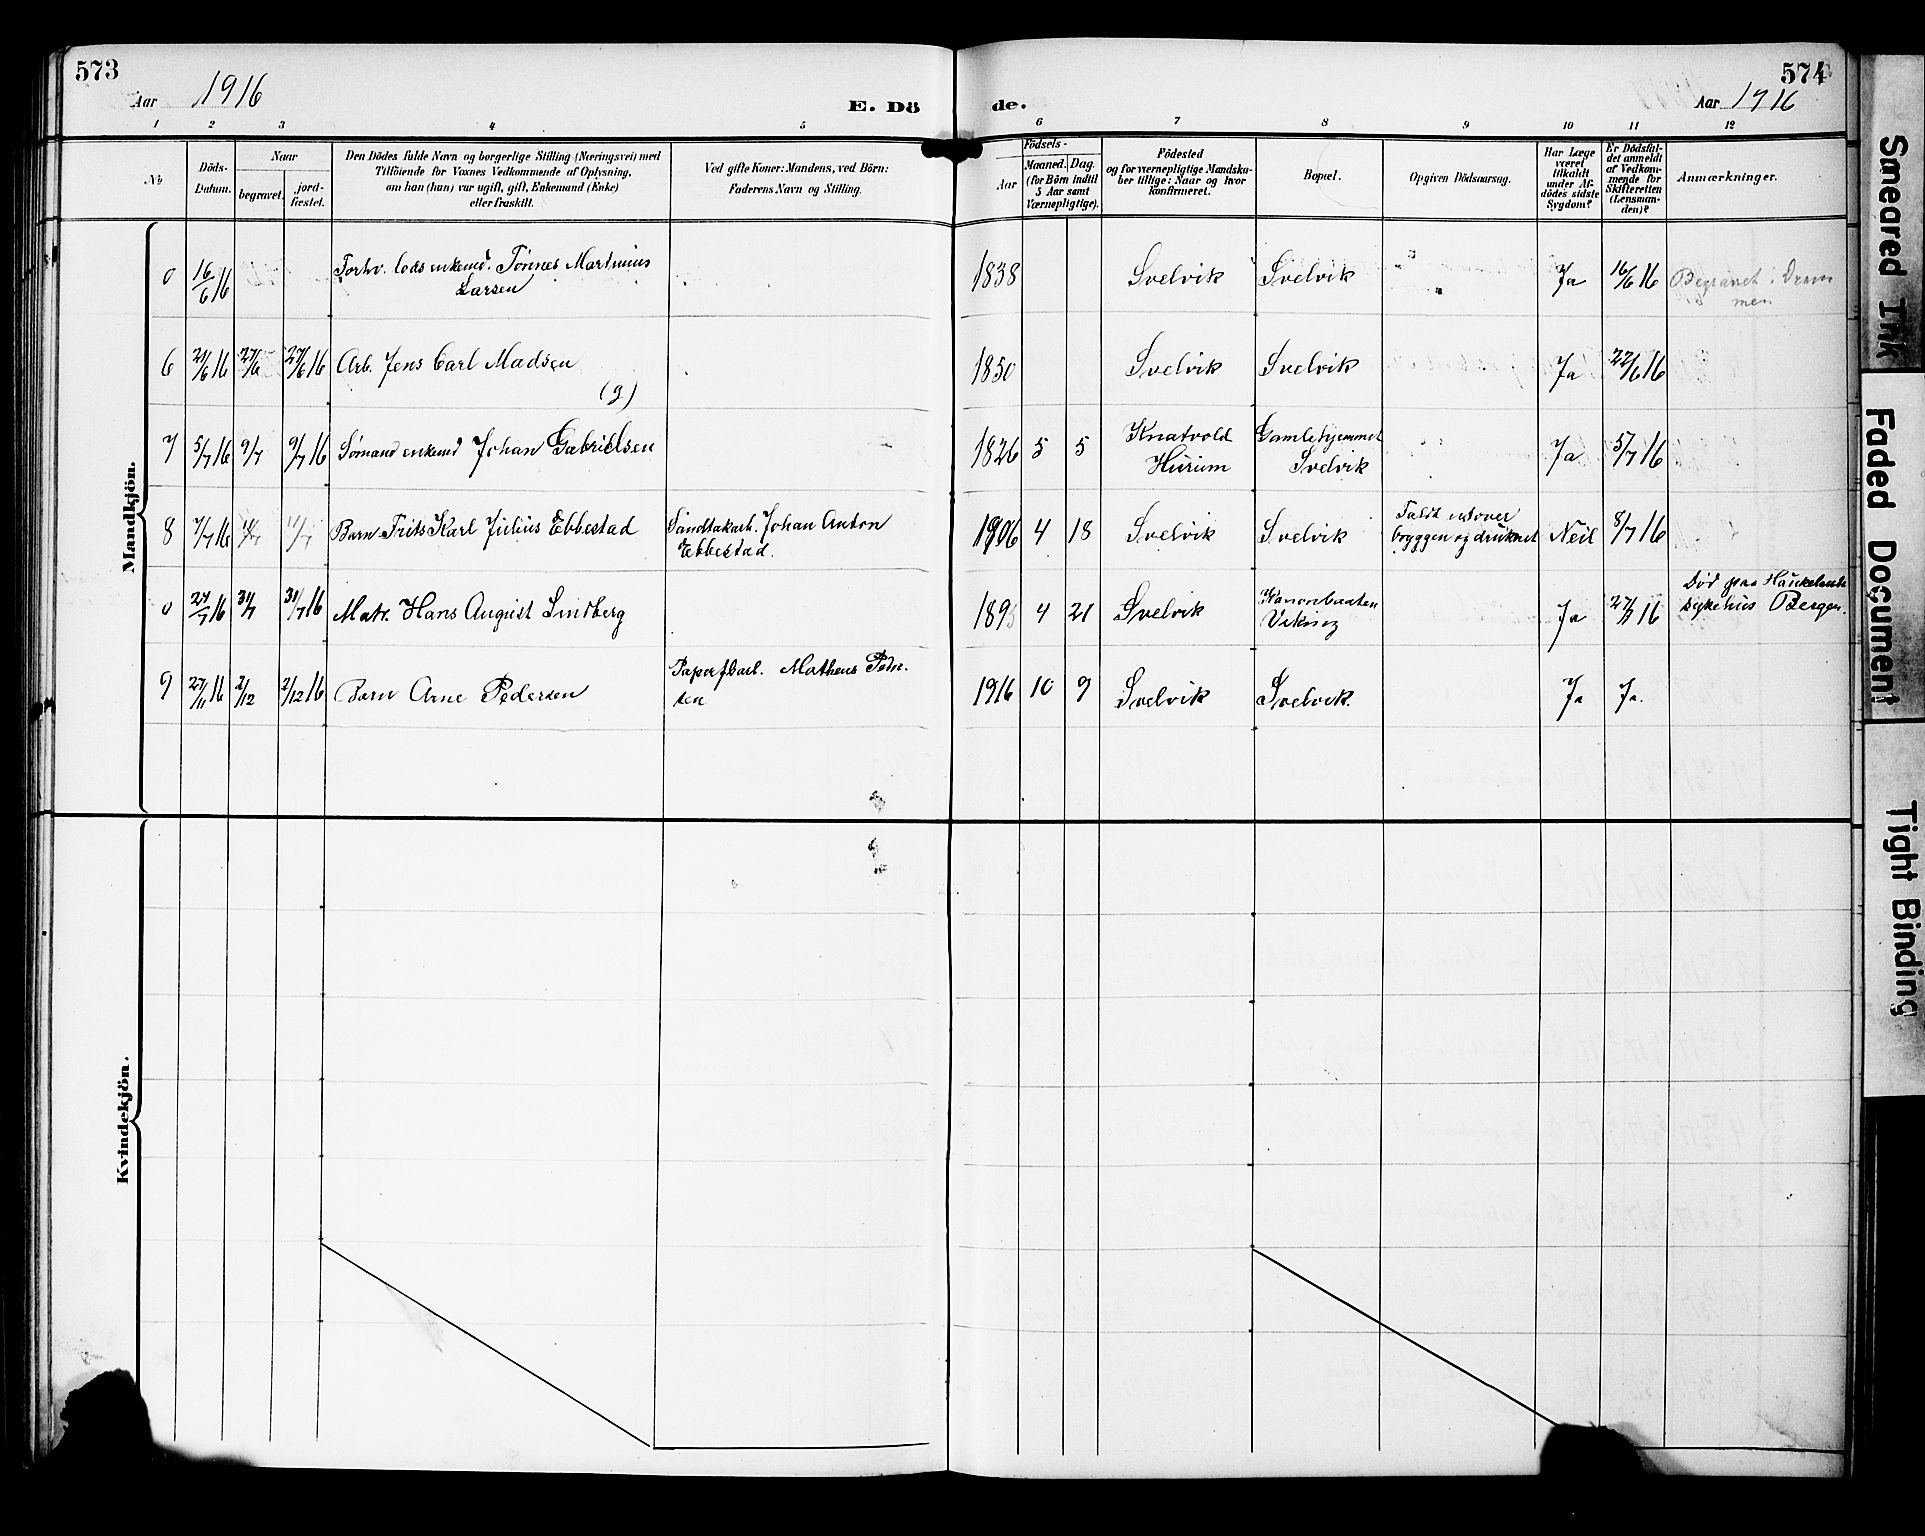 573
Aar 1916
E. Dö
de.
574
Aar 1916
1 2 3 4 5 6 7 8 9 10 11 12
No
Döds-
Datum.
Naar
begravet.
jord-
fæstet.
Den Dödes fulde Navn og borgerlige Stilling (Næringsvei) med
Tilföiende for Voxnes Vedkommende af Oplysning,
om han (hun) var ugift, gift, Enkemand (Enke)
eller fraskilt.
Ved gifte Koner: Mandens, ved Börn:
Faderens Navn og Stilling.
Födsels-
Aar
Maaned.
Dag.
(for Börn indtil
5 Aar samt
Værnepligtige).
Födested
og for værnepligtige Mandska-
ber tillige: Naar og hvor
konfirmeret.
Bopæl.
Opgiven Dödsaarsag.
Har Læge
været
tilkaldt
under Af-
dödes sidste
Sygdom?
Er Dödsfal-
det anmeldt
af Vedkom-
mende for
Skifteretten
(Lensman-
den)?
Anmærkninger.
Mandkjön.
0 16/6 16 Forhv. lods enkemd. Tønnes Martinius
Larsen
1838 Svelvik Svelvik Ja 16/6 16 Begravet i Dram
men
6 21/6 16 27/6 27/6 16 Arb. Jens Carl Madsen
(g)
1850 Svelvik Svelvik Ja 22/6 16
7 5/7 16 9/7 9/7 16 Sømand enkemd Johan Gabrielsen
1826 5 5 Knatvold
Hurum
Gamlehjemmet
Svelvik
Ja 5/7 16
8 7/7 16 11/7 11/7 Barn Frits Karl Julius Ebbestad
Sandtakarb. Johan Anton
Ebbestad.
1906 4 18 Svelvik Svelvik
Faldt utover
bryggen og druknet
Neil 8/7 16
0 24/7 16 31/7 31/7 16 Matr. Hans August Lindberg
189 4 21 Svelvik
Kanonbaaten
Viking
Ja 27/7 16
Død paa Haukelands
sykehus Bergen.
9 27/11 16 2/12 2/12 16 Barn Arne Pedersen
Papirfbarb. Matheus Peder-
sen
1916 10 9 Svelvik Svelvik. Ja Ja.
Kvindekjön.
Smeared Ink
Faded Document
Tight Binding